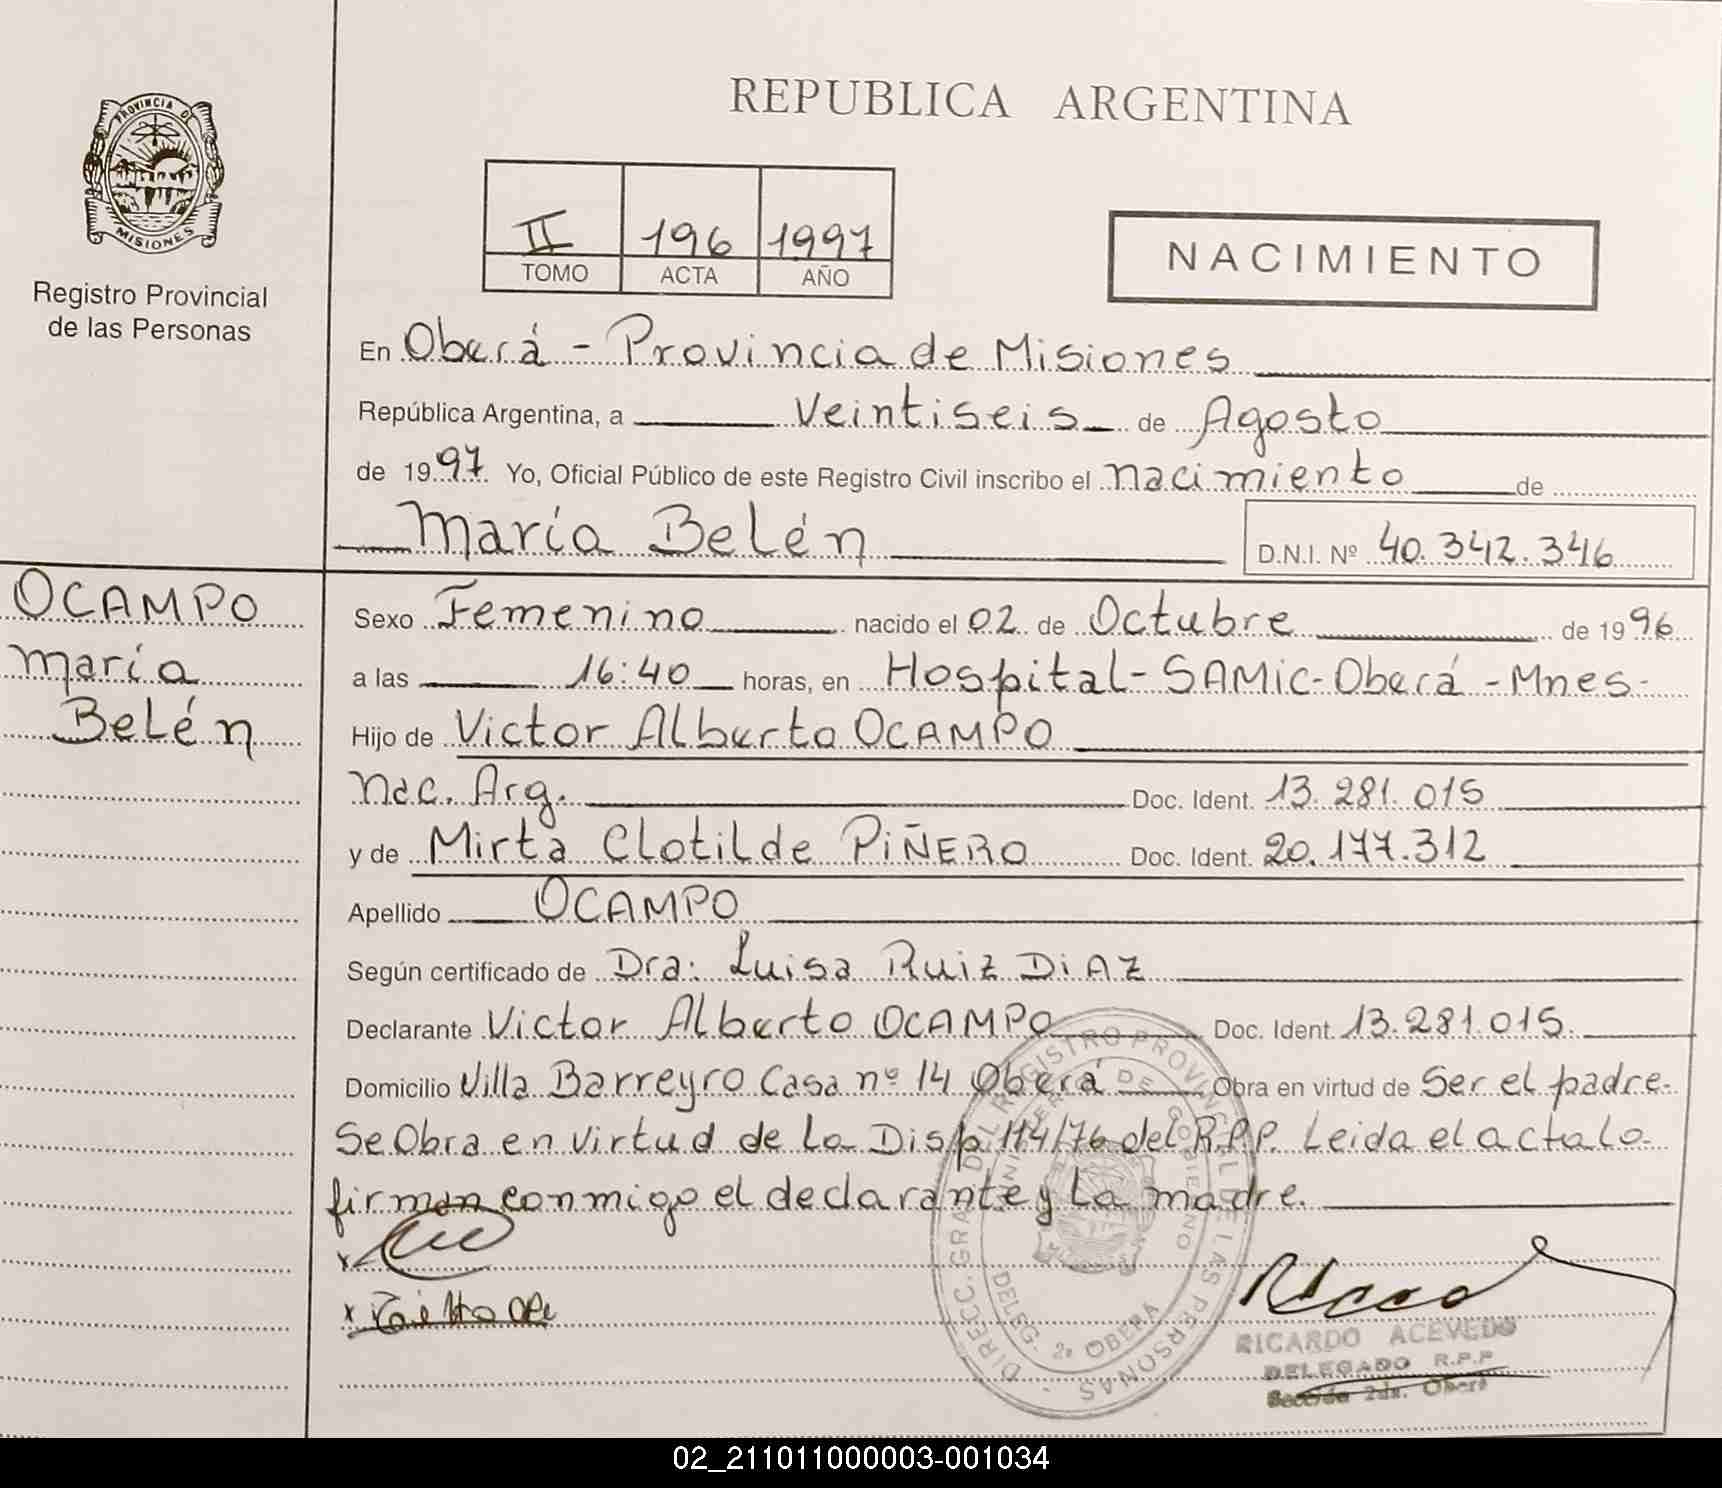 REPUBLICA ARGENTINA
PROVINCIA DE
MISIONES
Registro Provincial
de las Personas
II 196 1997
TOMO ACTA AÑO
NACIMIENTO
En Oberá - Provincia de Misiones
República Argentina, a Veintiseis de Agosto
de 1997 Yo, Oficial Público de este Registro Civil inscribo el nacimiento de
María Belén D.N.I. Nº 40.342.346
OCAMPO
María
Belén
Sexo Femenino nacido el 02 de Octubre de 1996
a las 16:40 horas, en Hospital-SAMiC-Oberá-Mnes-
Hijo de Victor Alberto OCAMPO
Nac. Arg. Doc. Ident. 13.281.015
y de Mirta Clotilde PiÑERO Doc. Ident. 20.177.312
Apellido OCAMPO
Según certificado de Dra: Luisa Ruiz DiAZ
Declarante Victor Alberto OCAMPO Doc. Ident. 13.281.015.
Domicilio Villa Barreyro Casa nº 14 Oberá Obra en virtud de Ser el padre.
Se Obra en virtud de la Disp. 114/76 del R.P.P. Leida el acta lo
firman conmigo el declarante y la madre.
DIRECC. GRAL. DEL REGISTRO PROVINCIAL DE LAS PERSONAS
MINISTERIO DE GOBIERNO
DELEG. 2ª OBERA
RICARDO ACEVEDO
DELEGADO R.P.P
Sección 2da. Oberá
02_211011000003-001034